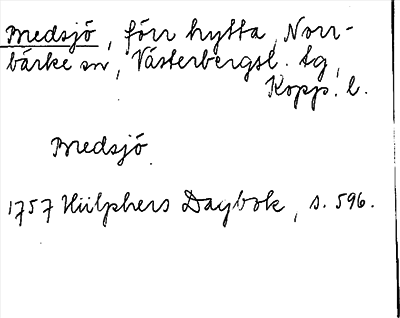 Bredsjö, förr hytta, Norr-
bärke sn, Västerbergsl. tg,
Kopp. l.
Bredsjö
1757 Hülphers Dagbok, s. 596.